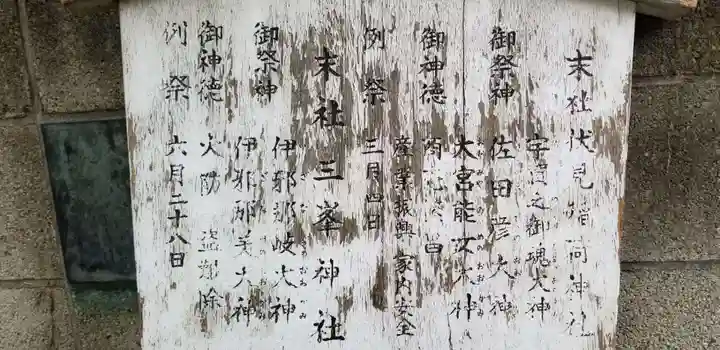 末社伏見稲荷神社
御祭神 宇迦之御魂大神
佐田彦大神
大宮能汶大神
御神徳
産業振興 家内安全
例祭 三月四日
末社三峯神社
御祭神 伊邪那岐大神
伊邪那美大神
御神徳 火防 盗難除
例祭 六月二十八日